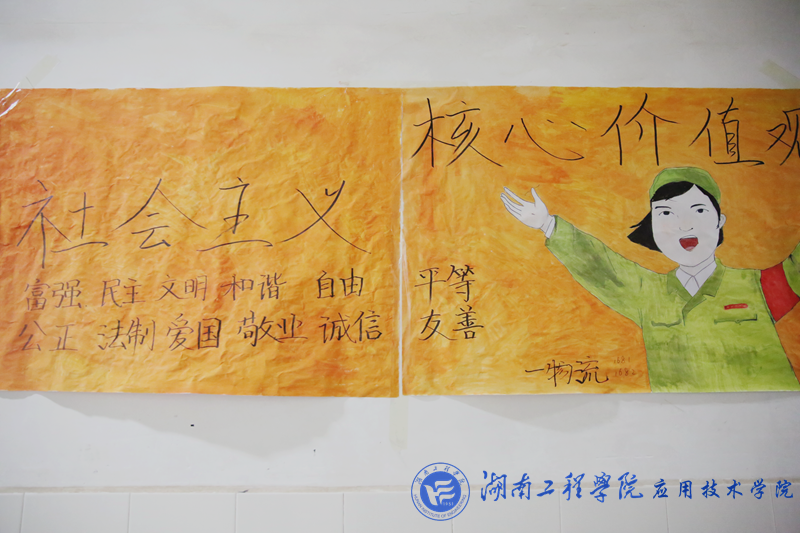 社会主义
核心价值观
富强 民主 文明 和谐 自由 平等
公正 法制 爱国 敬业 诚信 友善
一物流
湖南工程学院应用技术学院